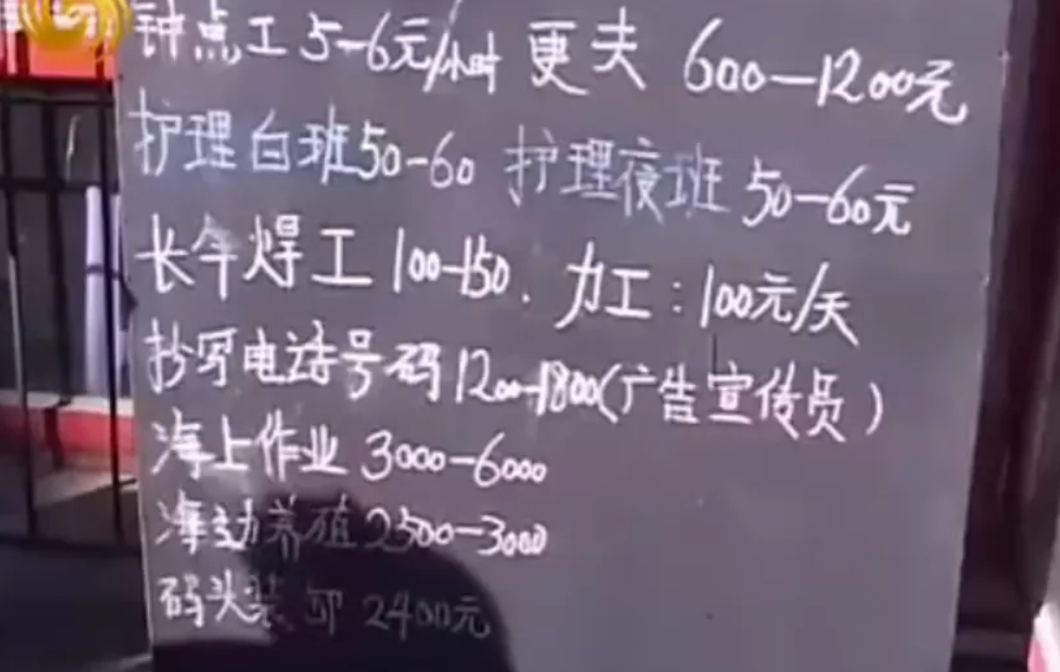 钟点工 5-6元/小时 更夫 600-1200元
护理白班50-60 护理夜班 50-60元
长年焊工 100-150. 力工:100元/天
抄写电话号码1200-1800(广告宣传员)
海上作业 3000-6000
海 养殖2500-3000
码头装卸 2400元